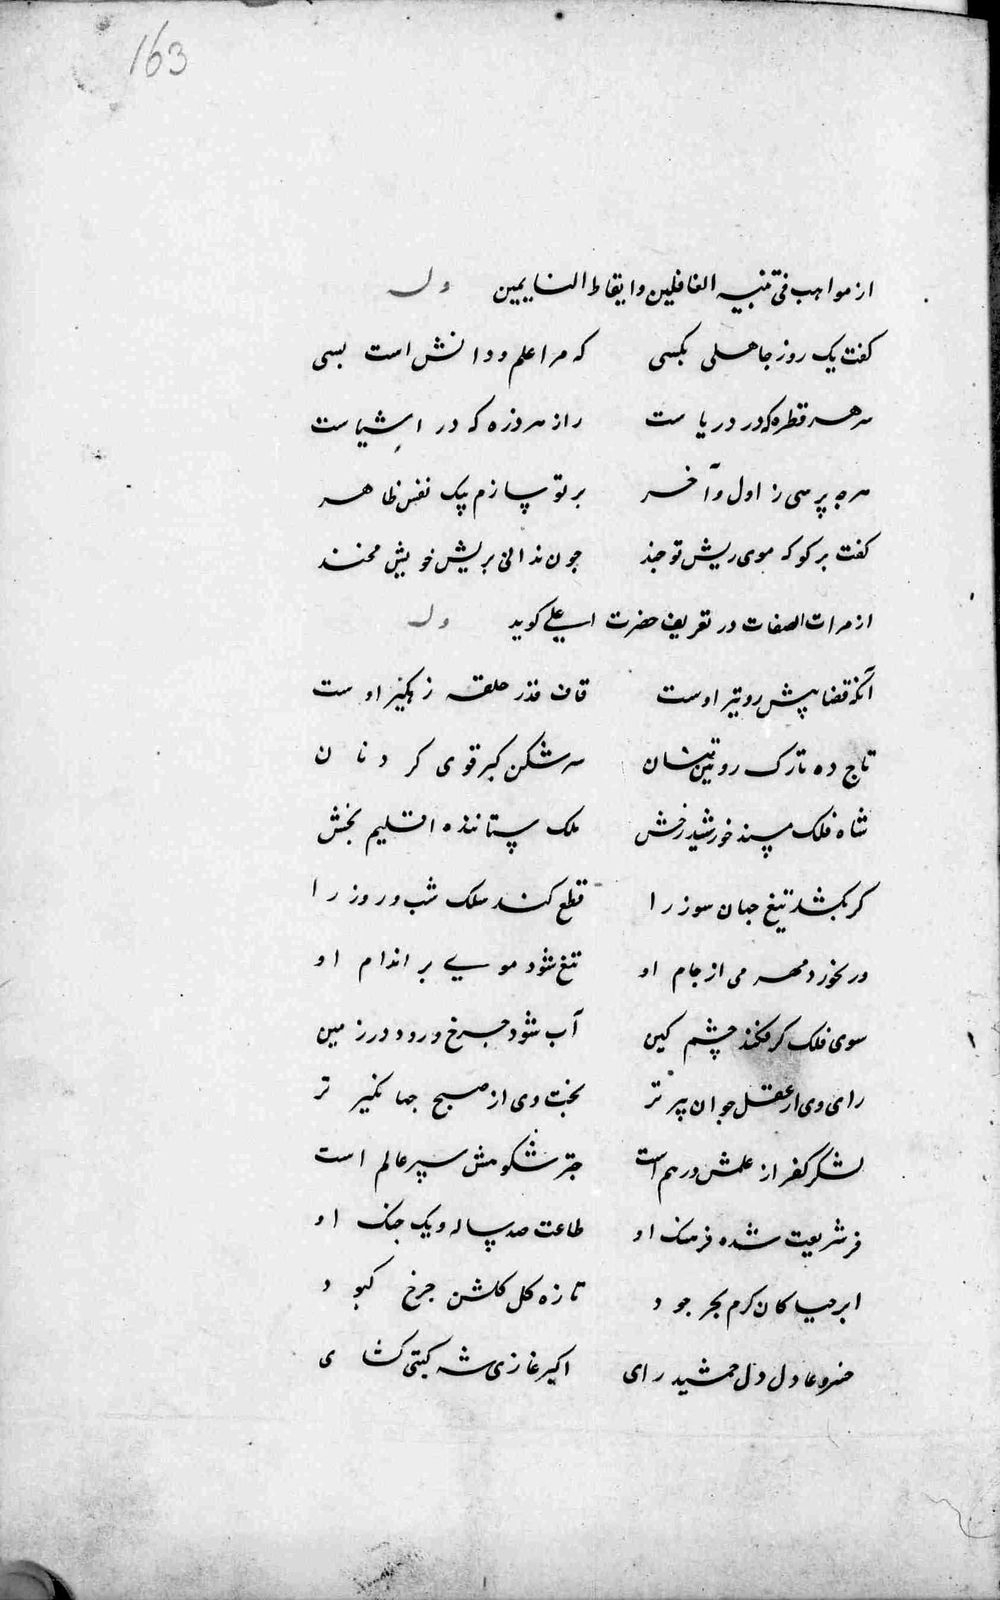 163
از مواهب فی تنبیه الغافلین و ایقاط النایمین وله
کفت یک روز جاهلی بکسی که مرا علم و دانش است بسی
سر هر قطره که در دریاست راز هر ذره که در اشیاست
هرچه پرسی ز اول و آخر بر تو سازم بیک نفس ظاهر
کفت بر کو که موی ریش تو چند چون ندانی بریش خویش مخند
از مرات الصفات در تعریف حضرت علی کوید وله
آنکه قضا پیش رو تیر اوست قاف قدر حلقه زهکیر اوست
تاج ده تارک رویین تنان سر شکن کبر قوی کردنان
شاه فلک مسند خورشید رخش ملک ستاننده اقلیم بخش
کر بکشد تیغ جهان سوز را قطع کند ملک شب و روز را
ور بخورد مهر می از جام او تیغ شود موی بر اندام او
سوی فلک کر فکند چشم کین آب شود چرخ و رود در زمین
رای وی از عقل جوان پیرتر بخت وی از صبح جهانکیرتر
لشکر کفر از علمش درهم است چتر شکوهش سپر عالم است
فر شریعت شده فرهنک او طاعت صد ساله و یک جنک او
ابر حیا کان کرم بحر جود تازه کل کلشن چرخ کبود
خسرو عادل دل جمشید رای اکبر غازی شه کیتی کشای